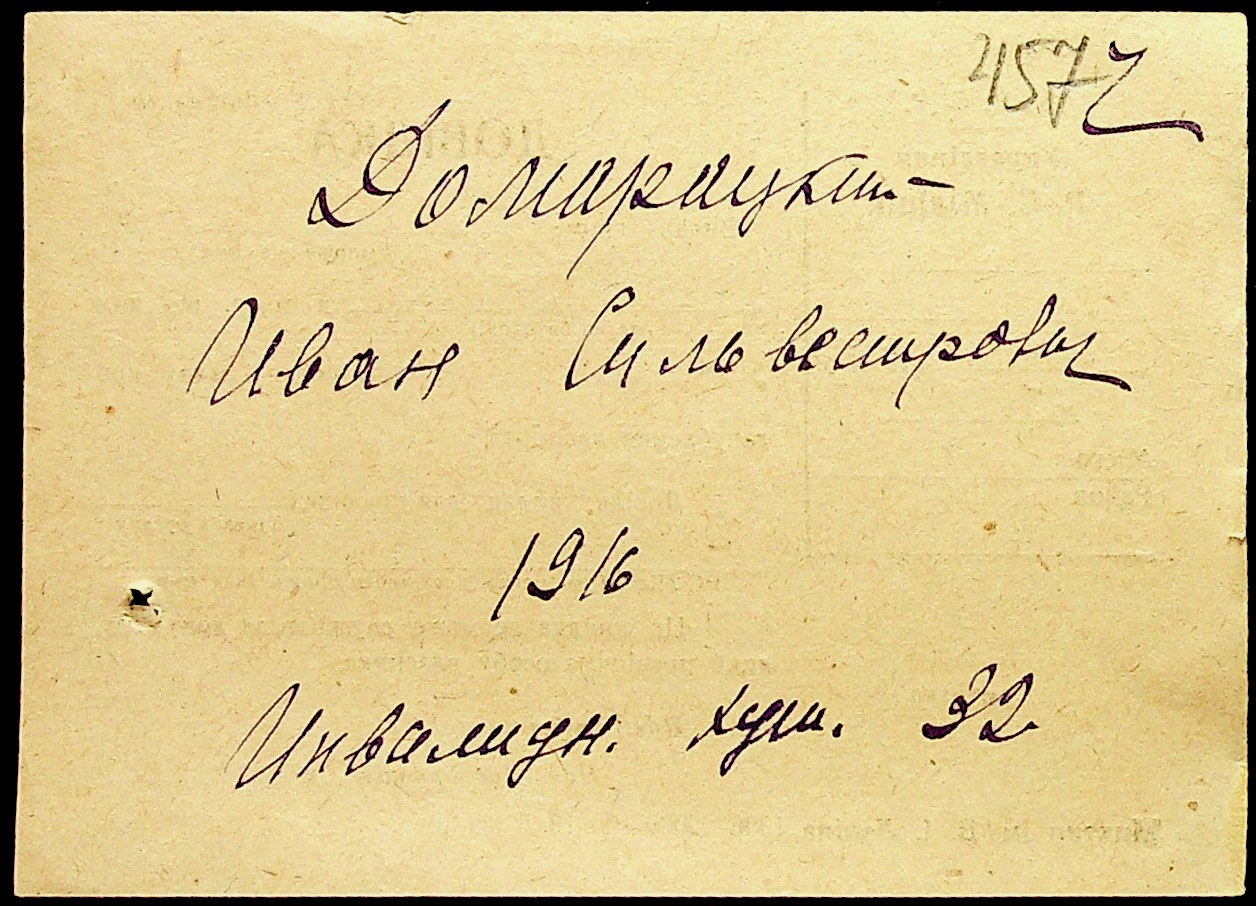 457
Домарацкий
Иван Сильвестрович
1916
Инвалидн. хут. 32